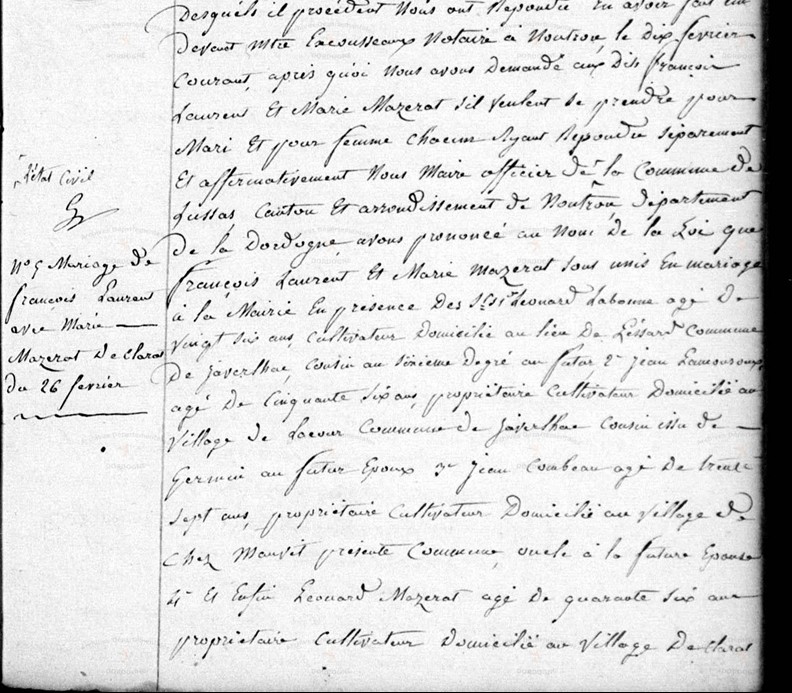 desquels il procèdent Nous ont Repondu En avoir fait un
devant Mtre Lacousseaux Notaire à Nontron le dix fevrier
Courant, après quoi Nous avons Demandé aux Dis françois
Laurent Et Marie Mazerat s'il veulent se prendre pour
Mari Et pour femme chacun Ayant Repondu séparement
Et affirmativement Nous Maire officier de la Commune de
Lussas Canton Et arrondissement de Nontron département
de la Dordogne avons prononcé au Nom de la Loi que
françois Laurent Et Marie Mazerat sont unis En mariage
à la Mairie En présence Des Leonard Labonne agé De
vingt six ans Cultivateur Domicilié au lieu De Lessard Commune
De Javerlhac, Cousin au sixieme Degré au futur 2º jean Lamouroux,
agé De Cinquante six ans, propriétaire Cultivateur Domicilié au
village de Lacour Commune de Javerlhac Cousin issu de
Germain au futur Epoux 3º jean Combeau agé De trente
sept ans, propriétaire Cultivateur Domicilié au village de
Chez Mauvit présente Commune, oncle à la future Epouse
4º Et Enfin Leonard Mazerat agé De quarante six ans
propriétaire Cultivateur Domicilié au village De Clarat
l'état Civil
Nº 5 Mariage de
françois Laurent
avec Marie
Mazerat De Clarat
du 26 fevrier